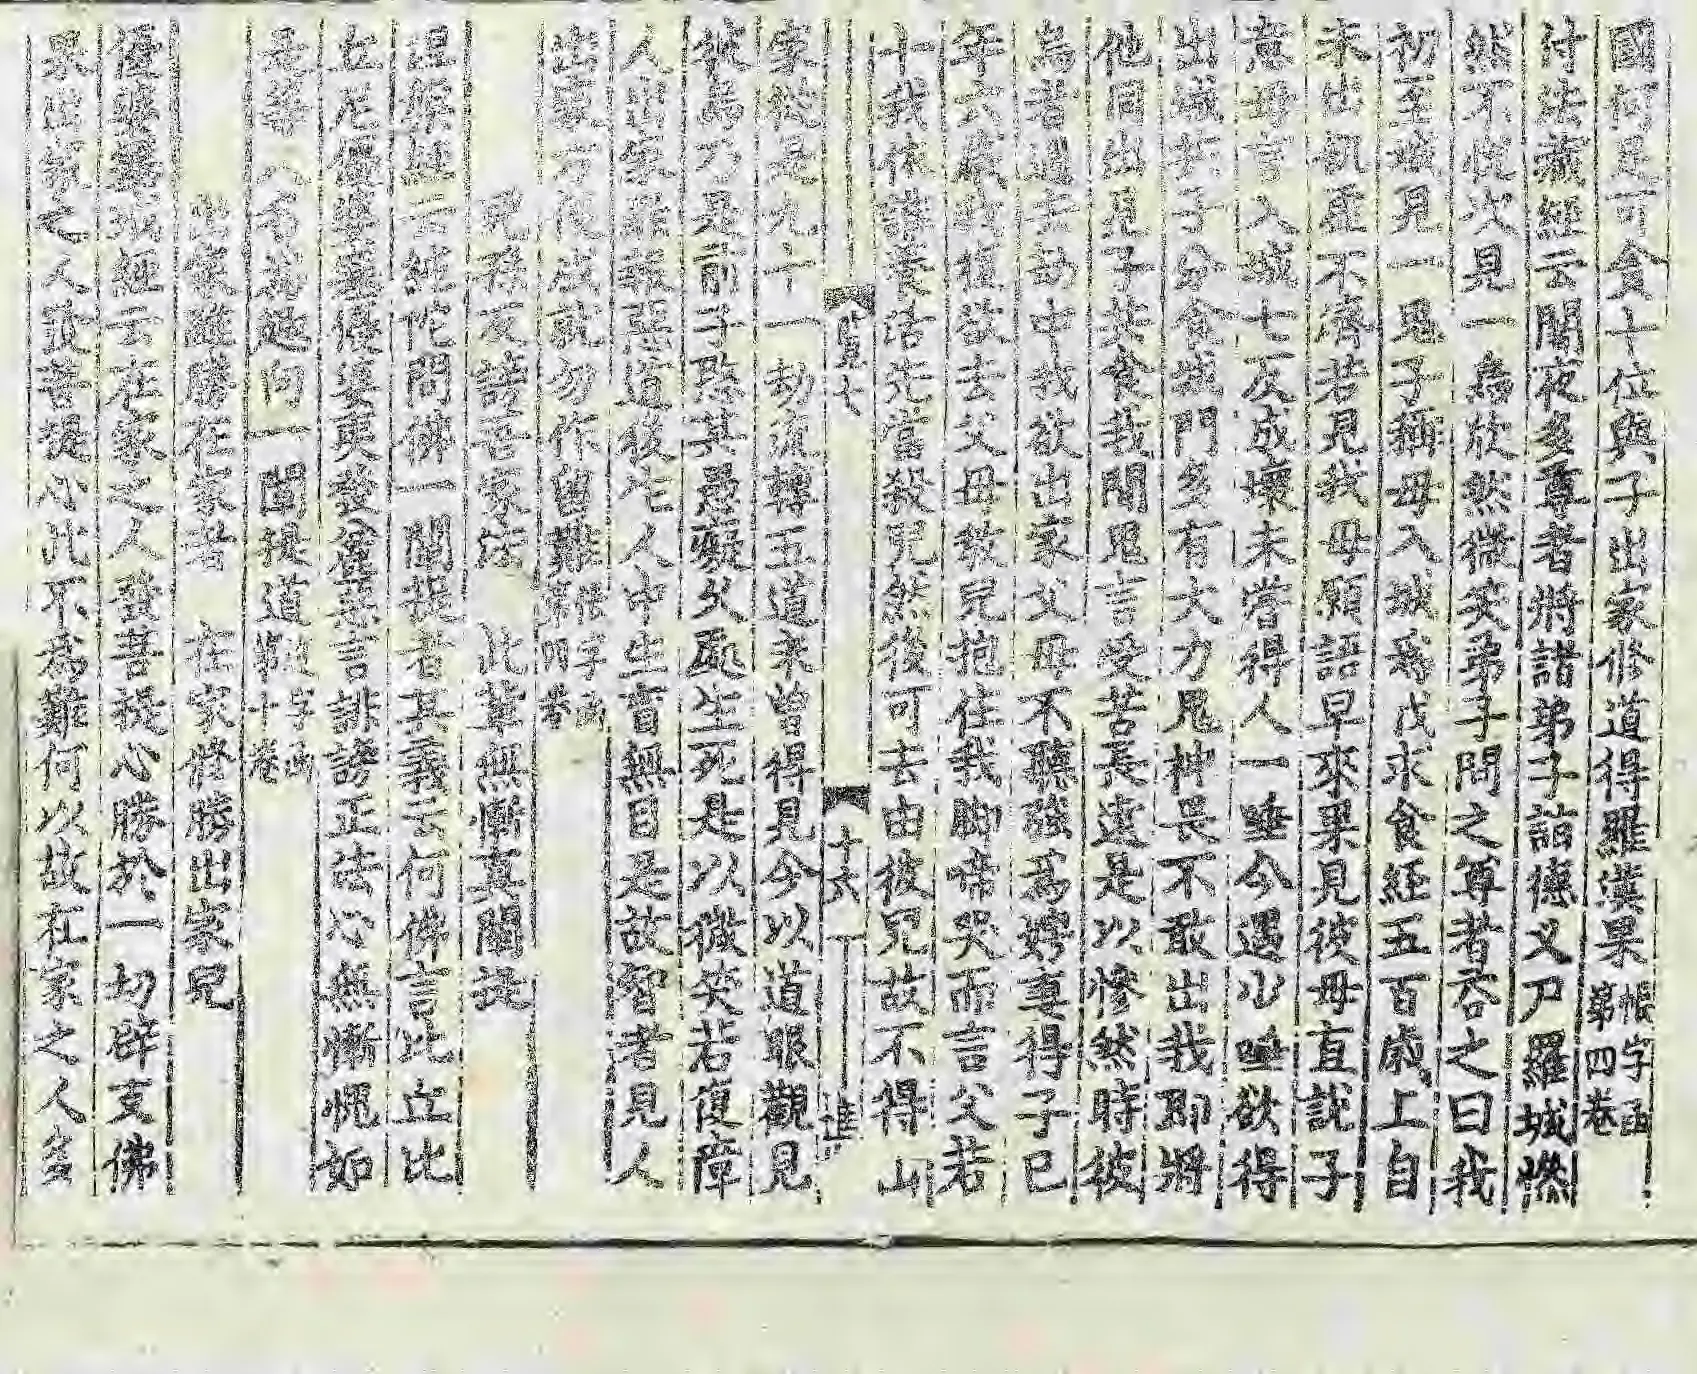 國何足可貪十位與子出家修道得羅漢果帳字函第四卷
付法藏經云闍夜多尊者將諸弟子詣德叉尸羅城慘
然不悅次見一烏欣然微笑弟子問之尊者荅之曰我
初至城見一鬼子稱母入城爲我求食經五百歲上自
未出飢虛不濟若見我母願語早來果見彼母直說子
意母言入城七反成壞未甞得人一唾今遇小唾欲得
出城共子分食城門多有大力鬼神畏不敢出我即將
他同出見子共食我聞鬼言受苦長遠是以慘然時彼
烏者過去劫中我欲出家父母不聽強爲娉妻得子已
年六歲我復欲去父母教兒抱住我脚啼哭而言父若
十我休誰養活先當殺兒然後可去由彼兒故不得 山
家從是九十一劫流轉五道未曾得見今以道眼觀見
彼烏乃是前子愍其愚癡久處生死是以微笑若復障
人出家罪報惡道後生人中生盲無目是故智者見人
出家方便成就勿作留難
兒孫反謗吾家法 此輩無慚真闡提
涅槃經云純陀問佛一闡提者其義云何佛言比丘比
丘尼優婆塞優婆夷發麤惡言誹謗正法心無慚愧如
是等人名爲趣向一闡提道 字函十卷
出家雖勝在家者 在家修勝出家兒
優婆塞戒經云在家之人發菩提心勝於一切辟支佛
果出家之人發菩提心此不爲難何以故在家之人多
七
十六